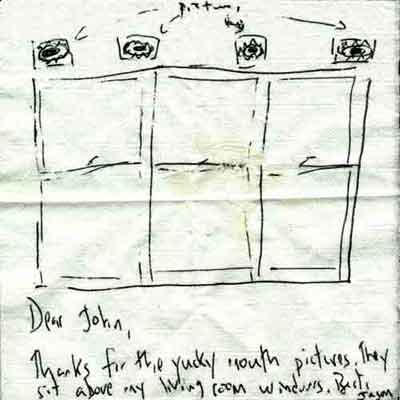 pictures
Dear John,
Thanks for the yucky mouth pictures. They
sit above my living room windows. Best,
Jason